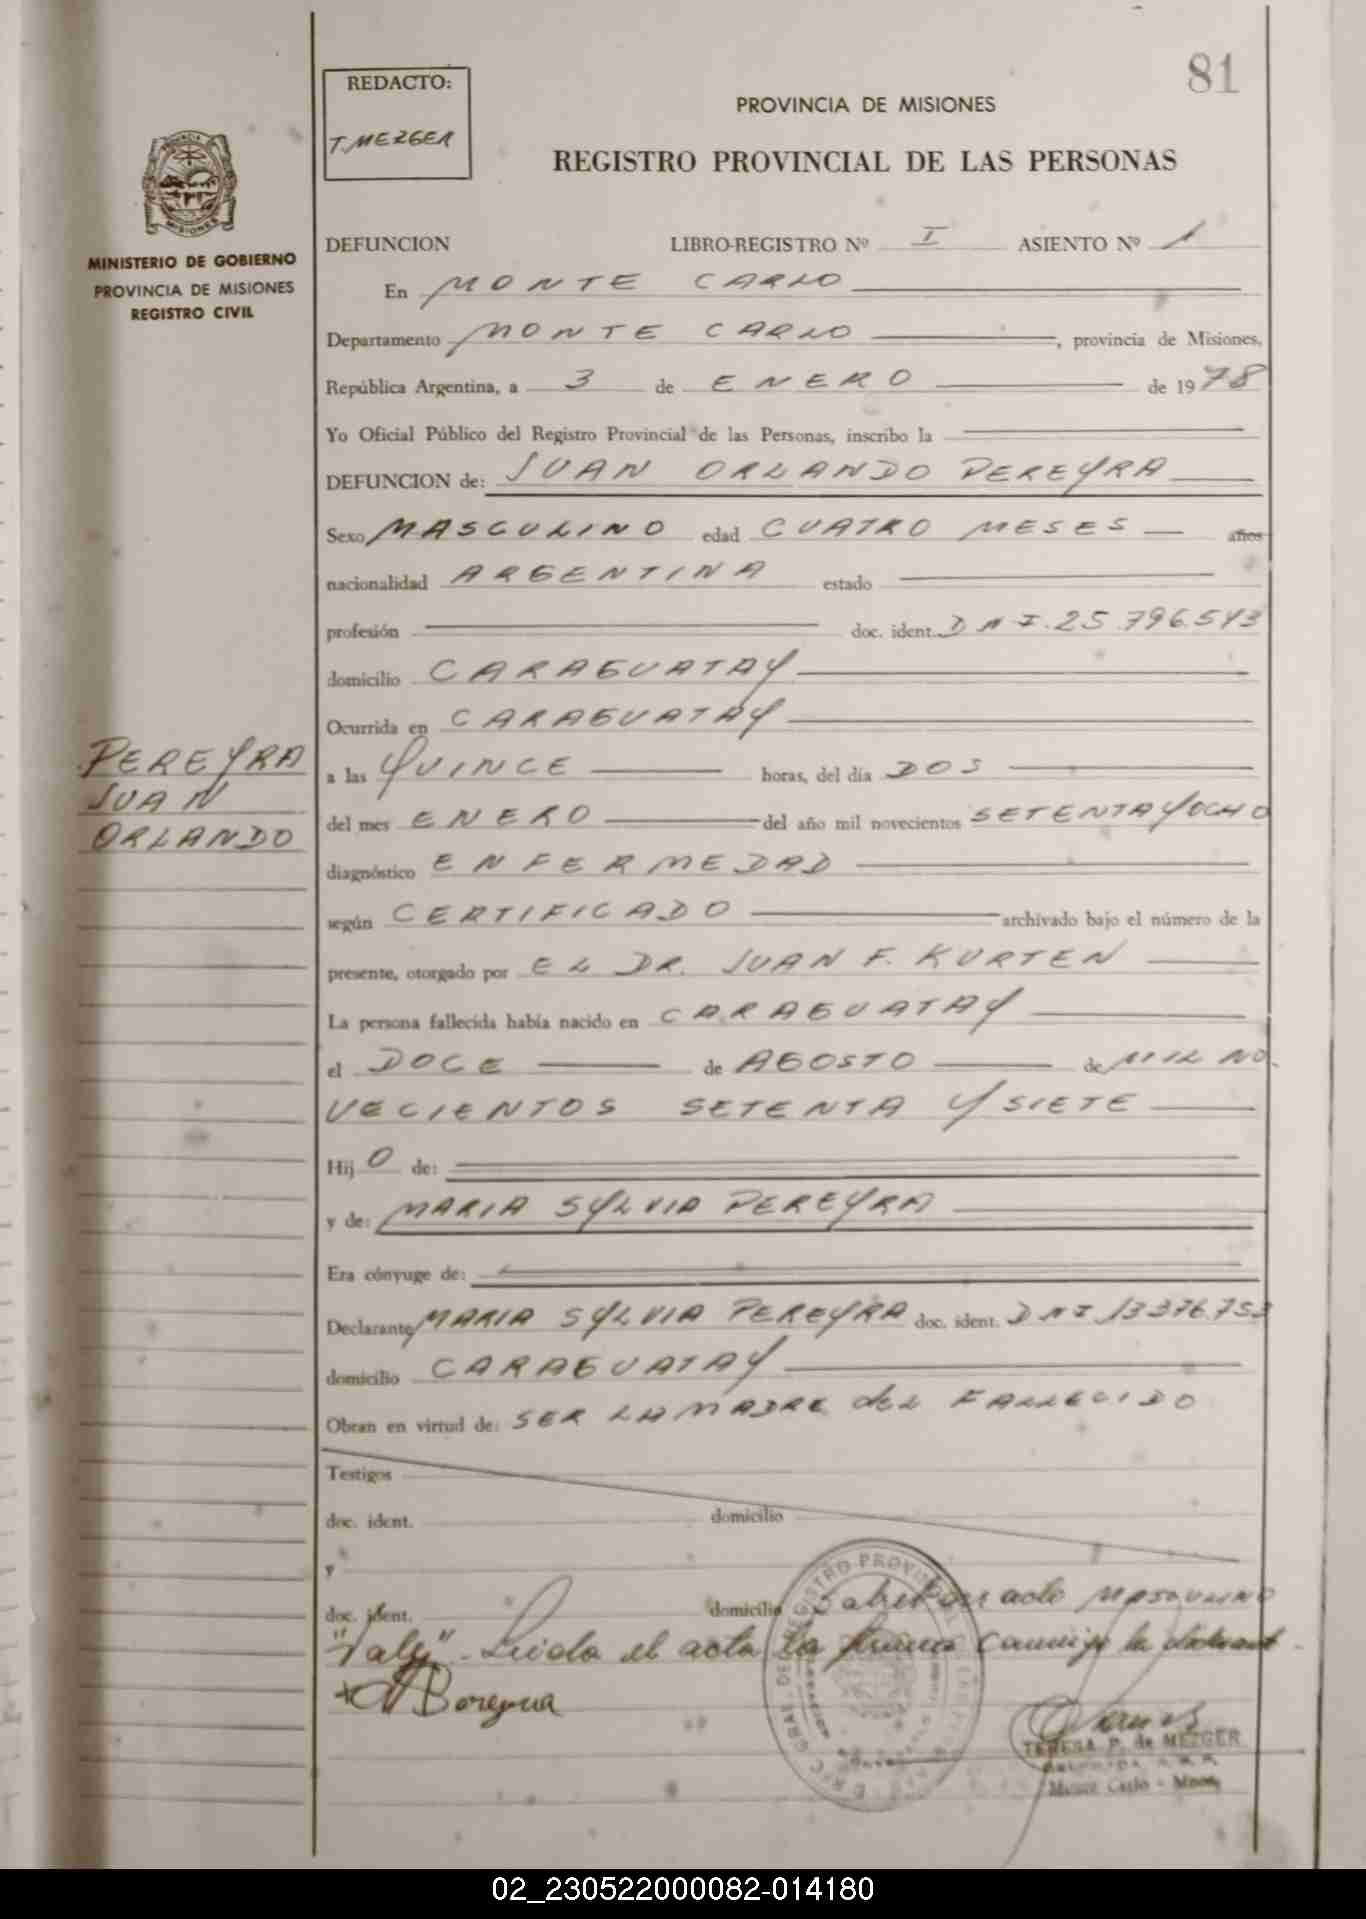 81
REDACTO:
T. MEZGER
PROVINCIA DE MISIONES
REGISTRO PROVINCIAL DE LAS PERSONAS
MINISTERIO DE GOBIERNO
PROVINCIA DE MISIONES
REGISTRO CIVIL
DEFUNCION LIBRO-REGISTRO Nº I ASIENTO Nº 1
En MONTE CARLO
Departamento MONTE CARLO, provincia de Misiones,
República Argentina, a 3 de ENERO de 1978
Yo Oficial Público del Registro Provincial de las Personas, inscribo la
DEFUNCION de: JUAN ORLANDO PEREYRA
Sexo MASCULINO edad CUATRO MESES — años
nacionalidad ARGENTINA estado
profesión doc. ident. DNI. 25.796.543
domicilio CARAGUATAY
Ocurrida en CARAGUATAY
PEREYRA
JUAN
ORLANDO
a las QUINCE horas, del día DOS
del mes ENERO del año mil novecientos SETENTA Y OCHO
diagnóstico ENFERMEDAD
según CERTIFICADO archivado bajo el número de la
presente, otorgado por EL DR. JUAN F. KURTEN
La persona fallecida había nacido en CARAGUATAY
el DOCE de AGOSTO de MIL NO
VECIENTOS SETENTA Y SIETE
Hij O de:
y de: MARIA SYLVIA PEREYRA
Era cónyuge de:
Declarante MARIA SYLVIA PEREYRA doc. ident. DNI 13376.753
domicilio CARAGUATAY
Obran en virtud de: SER LA MADRE del FALLECIDO
Testigos
doc. ident. domicilio
y
doc. ident. domicilio
"Vale". Leida el acta la firma conmigo la
TERESA P. de MEZGER
Monte Carlo - Mnes.
02_230522000082-014180